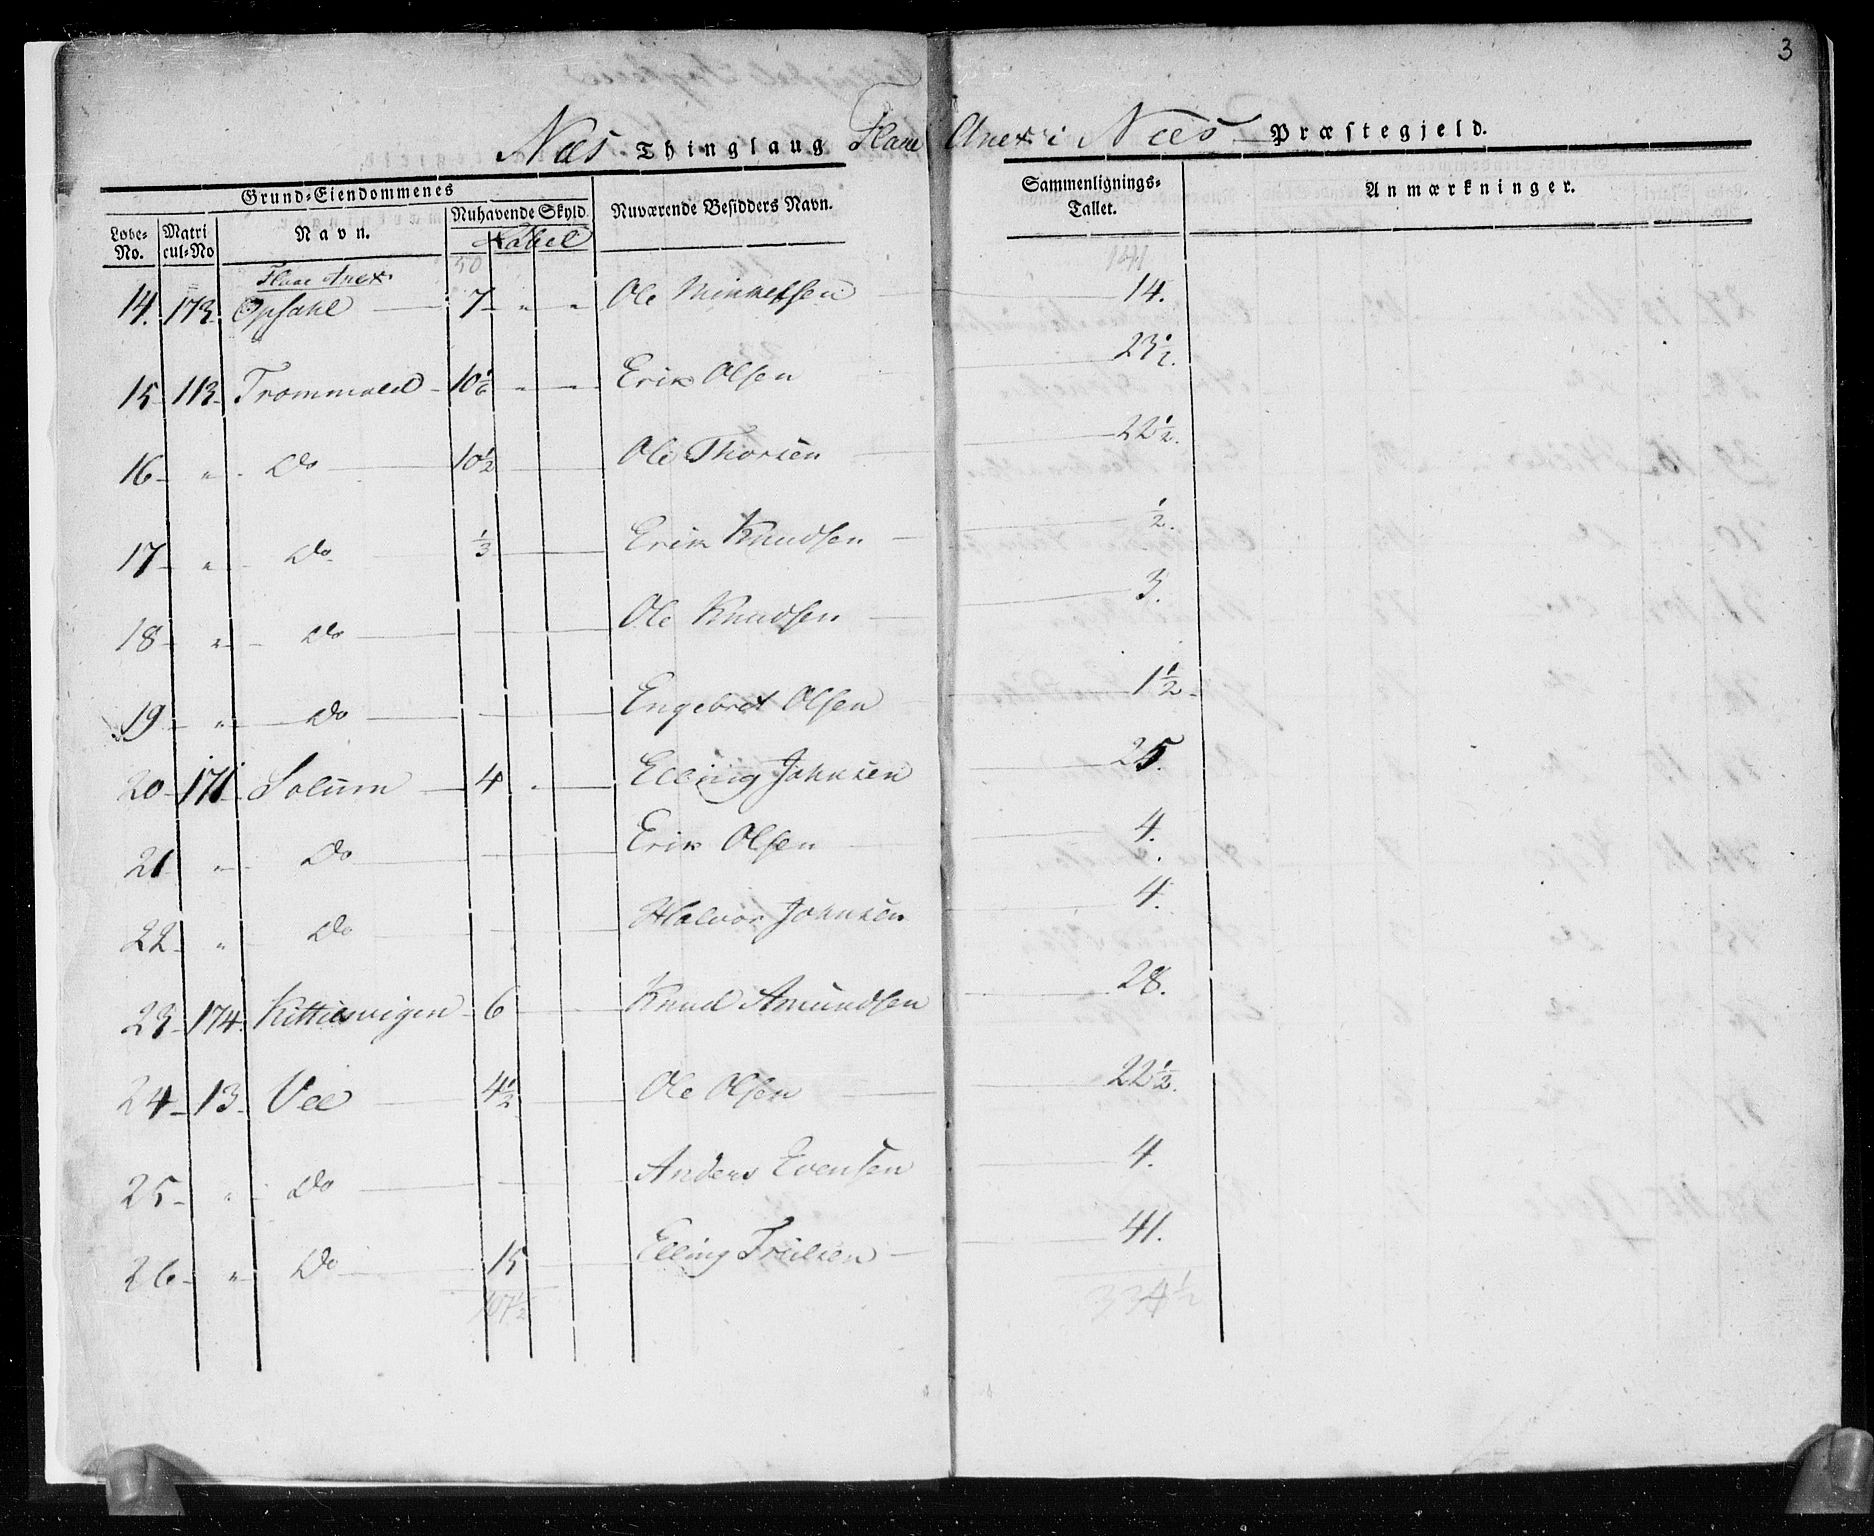 3
Næs Thinglaug Flaae Anex i Næs Præstegjeld.
Grund-Eiendommenes
Løbe-No. Matricul-No Navn. Nuhavende Skyld. Nuværende Besidders Navn. Sammenlignings-Tallet. Anmærkninger.
50 141
Flaae Anex
14. 173 Opsahl 7 " " Ole Mikkelsen 14.
15 113 Trommald 10 1/6 " " Erik Olsen 23 1/2.
16 " Do 10 1/2 Ole Thorsen 22 1/2.
17 " Do 1/3 Erik Knudsen 1/2.
18 " Do Ole Knudsen 3.
19 " Do Engebret Olsen 1 1/2
20 171 Solum 4 " Elling Johnsen 25.
21 " Do Erik Olsen 4.
22 " Do Halvor Johnsen 4.
23 174 Kittilsvigen 6 Knud Amundsen 28.
24 13 Vee 4 1/2 Ole Olsen 22 1/2.
25 " Do Anders Evensen 4.
26 " Do 15 Elling Troulsen 41.
107 1/2 334 1/2